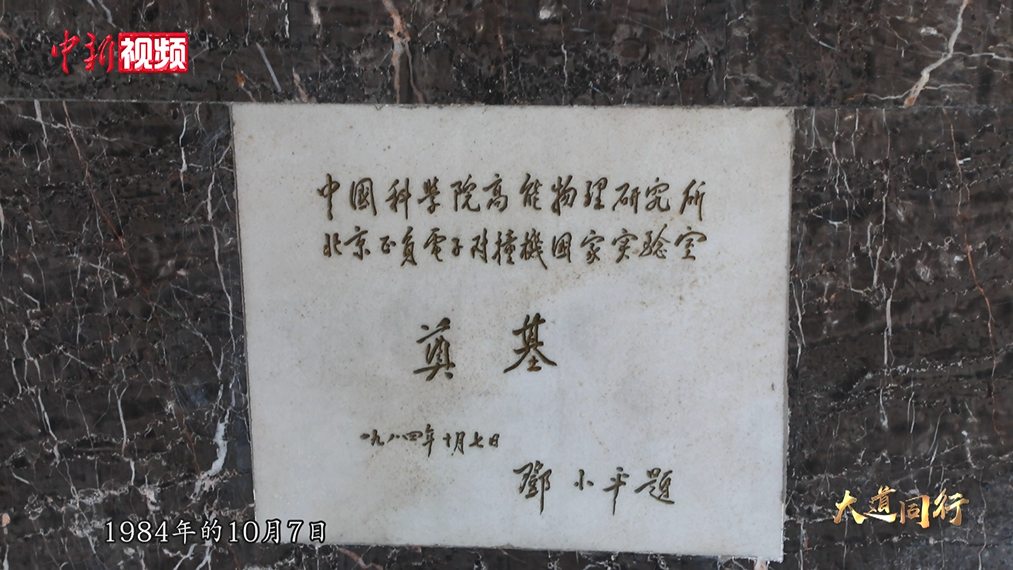 中新视频
中國科学院高能物理研究所
北京正負電子对撞機国家实验室
奠基
一九八四年十月七日
鄧小平題
1984年的10月7日
大道同行